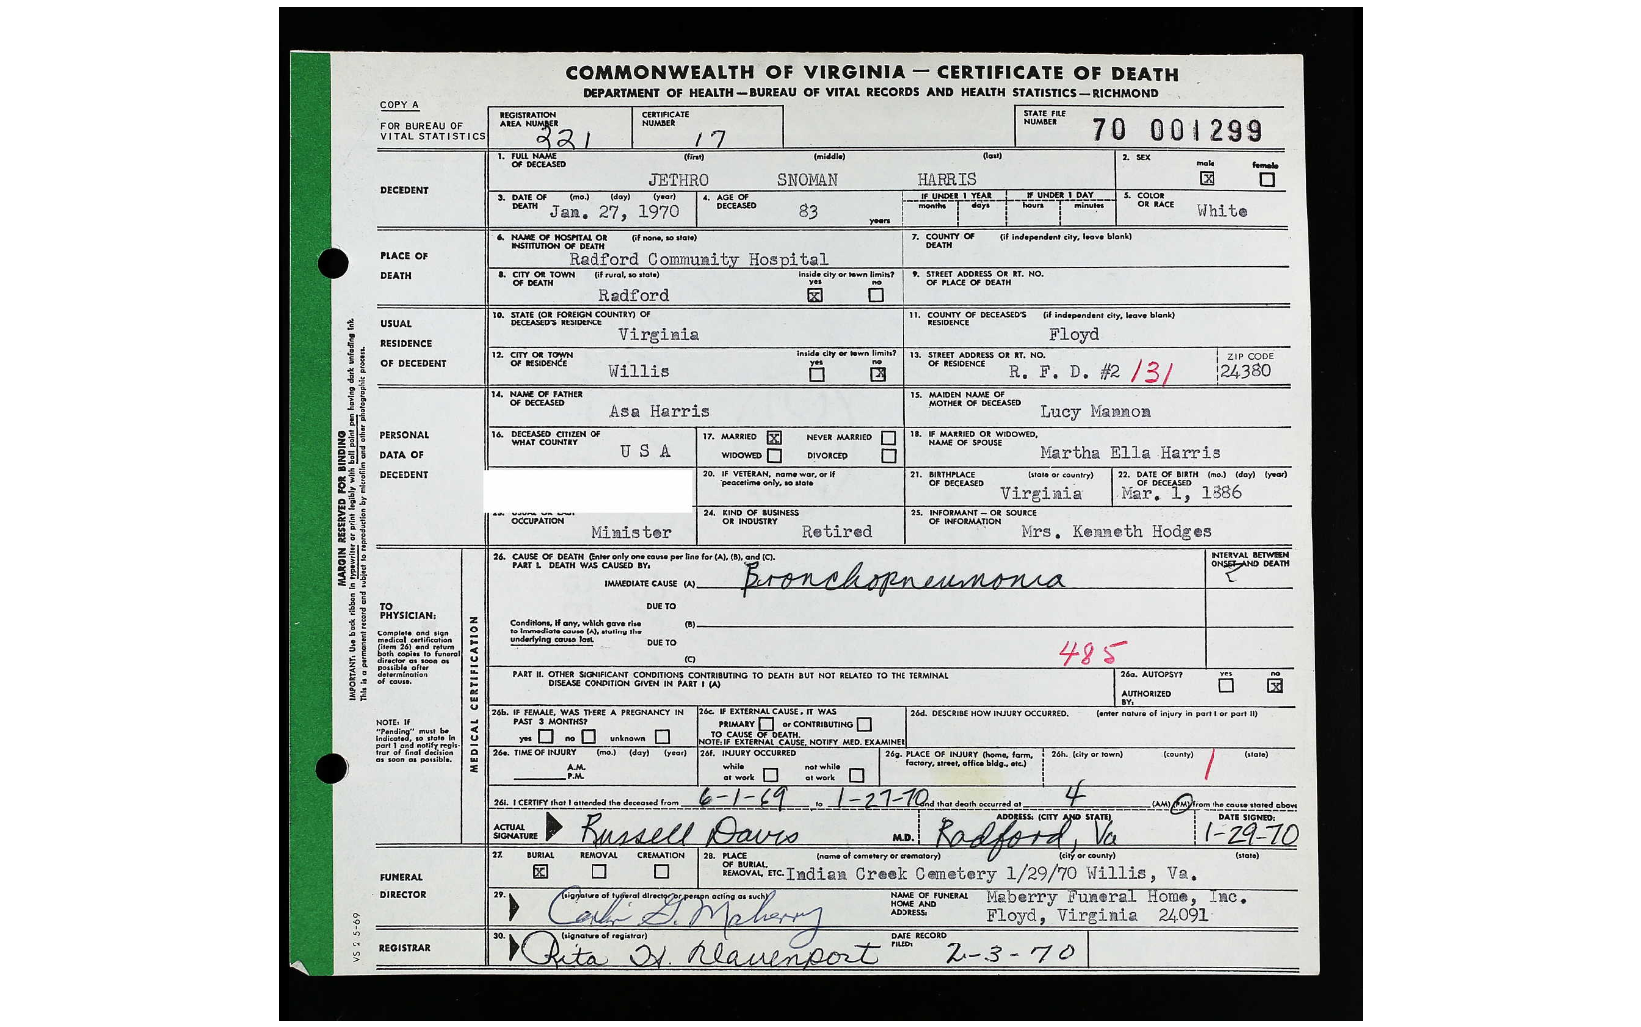 COMMONWEALTH OF VIRGINIA — CERTIFICATE OF DEATH
DEPARTMENT OF HEALTH—BUREAU OF VITAL RECORDS AND HEALTH STATISTICS—RICHMOND
COPY A
FOR BUREAU OF VITAL STATISTICS
REGISTRATION AREA NUMBER 221
CERTIFICATE NUMBER 17
STATE FILE NUMBER 70 001299
DECEDENT
1. FULL NAME OF DECEASED (first) (middle) (last)
JETHRO SNOMAN HARRIS
2. SEX male X female
3. DATE OF DEATH (mo.) (day) (year) Jan. 27, 1970
4. AGE OF DECEASED 83 years
IF UNDER 1 YEAR months days
IF UNDER 1 DAY hours minutes
5. COLOR OR RACE White
PLACE OF DEATH
6. NAME OF HOSPITAL OR INSTITUTION OF DEATH (if none, so state)
Radford Community Hospital
7. COUNTY OF DEATH (if independent city, leave blank)
8. CITY OR TOWN OF DEATH (if rural, so state) Radford
inside city or town limits? yes X no
9. STREET ADDRESS OR RT. NO. OF PLACE OF DEATH
USUAL RESIDENCE OF DECEDENT
10. STATE (OR FOREIGN COUNTRY) OF DECEASED'S RESIDENCE
Virginia
11. COUNTY OF DECEASED'S RESIDENCE (if independent city, leave blank)
Floyd
12. CITY OR TOWN OF RESIDENCE Willis
inside city or town limits? yes no X
13. STREET ADDRESS OR RT. NO. OF RESIDENCE R. F. D. #2 131
ZIP CODE 24380
PERSONAL DATA OF DECEDENT
14. NAME OF FATHER OF DECEASED Asa Harris
15. MAIDEN NAME OF MOTHER OF DECEASED Lucy Mannon
16. DECEASED CITIZEN OF WHAT COUNTRY U S A
17. MARRIED X NEVER MARRIED
WIDOWED DIVORCED
18. IF MARRIED OR WIDOWED, NAME OF SPOUSE Martha Ella Harris
20. IF VETERAN, name war, or if peacetime only, so state
21. BIRTHPLACE OF DECEASED (state or country) Virginia
22. DATE OF BIRTH OF DECEASED (mo.) (day) (year) Mar. 1, 1886
OCCUPATION Minister
24. KIND OF BUSINESS OR INDUSTRY Retired
25. INFORMANT — OR SOURCE OF INFORMATION Mrs. Kenneth Hodges
MARGIN RESERVED FOR BINDING
IMPORTANT: Use black ribbon in typewriter or print legibly with ball point pen having dark unfading ink.
This is a permanent record and subject to reproduction by microfilm and other photographic process.
TO PHYSICIAN:
Complete and sign medical certification (item 26) and return both copies to funeral director as soon as possible after determination of cause.
NOTE: If "Pending" must be indicated, so state in part 1 and notify registrar of final decision as soon as possible.
MEDICAL CERTIFICATION
26. CAUSE OF DEATH (Enter only one cause per line for (A), (B), and (C).
PART I. DEATH WAS CAUSED BY:
INTERVAL BETWEEN ONSET AND DEATH
IMMEDIATE CAUSE (A) Bronchopneumonia
DUE TO
Conditions, if any, which gave rise to immediate cause (A), stating the underlying cause last.
(B)
DUE TO
(C) 485
PART II. OTHER SIGNIFICANT CONDITIONS CONTRIBUTING TO DEATH BUT NOT RELATED TO THE TERMINAL DISEASE CONDITION GIVEN IN PART I (A)
26a. AUTOPSY? yes no X
AUTHORIZED BY:
26b. IF FEMALE, WAS THERE A PREGNANCY IN PAST 3 MONTHS?
yes no unknown
26c. IF EXTERNAL CAUSE, IT WAS
PRIMARY or CONTRIBUTING
TO CAUSE OF DEATH.
NOTE: IF EXTERNAL CAUSE, NOTIFY MED. EXAMINER
26d. DESCRIBE HOW INJURY OCCURRED. (enter nature of injury in part I or part II)
26e. TIME OF INJURY (mo.) (day) (year)
A.M.
P.M.
26f. INJURY OCCURRED
while at work not while at work
26g. PLACE OF INJURY (home, farm, factory, street, office bldg., etc.)
26h. (city or town) (county) (state)
1
26i. I CERTIFY that I attended the deceased from 6-1-69 to 1-27-70 and that death occurred at 4 (AM) (PM) from the cause stated above
ACTUAL SIGNATURE Russell Davis M.D.
ADDRESS: (CITY AND STATE) Radford, Va
DATE SIGNED: 1-29-70
FUNERAL DIRECTOR
27. BURIAL X REMOVAL CREMATION
28. PLACE OF BURIAL, REMOVAL, ETC. (name of cemetery or crematory) (city or county) (state)
Indian Creek Cemetery 1/29/70 Willis, Va.
29. (signature of funeral director or person acting as such)
G. Maberry
NAME OF FUNERAL HOME AND ADDRESS: Maberry Funeral Home, Inc.
Floyd, Virginia 24091
REGISTRAR
30. (signature of registrar)
Rita H. Davenport
DATE RECORD FILED: 2-3-70